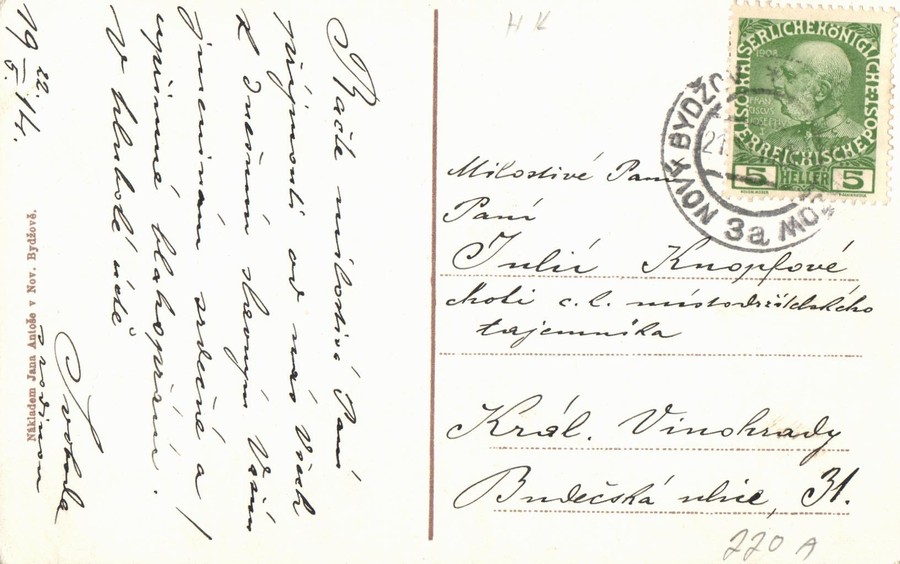 H K
Račte milostivá Paní
přijmouti od nás všech
k dnešním slavným Vašim
jmeninám srdečné a
upřímné blahopřání.
V hluboké úctě
Svoboda
s rodinou
19 22/5 14.
Nákladem Jana Antoše v Nov. Bydžově.
KAISERLICHE KÖNIGLICHE
ÖSTERREICHISCHE POST
1908
5 HELLER 5
NOVÝ BYDŽOV
21.
3a
Milostivé Paní
Paní
Julií Knopfové
choti c. k. místodržitelského
tajemníka
Král. Vinohrady
Budečská ulice, 31.
220 A